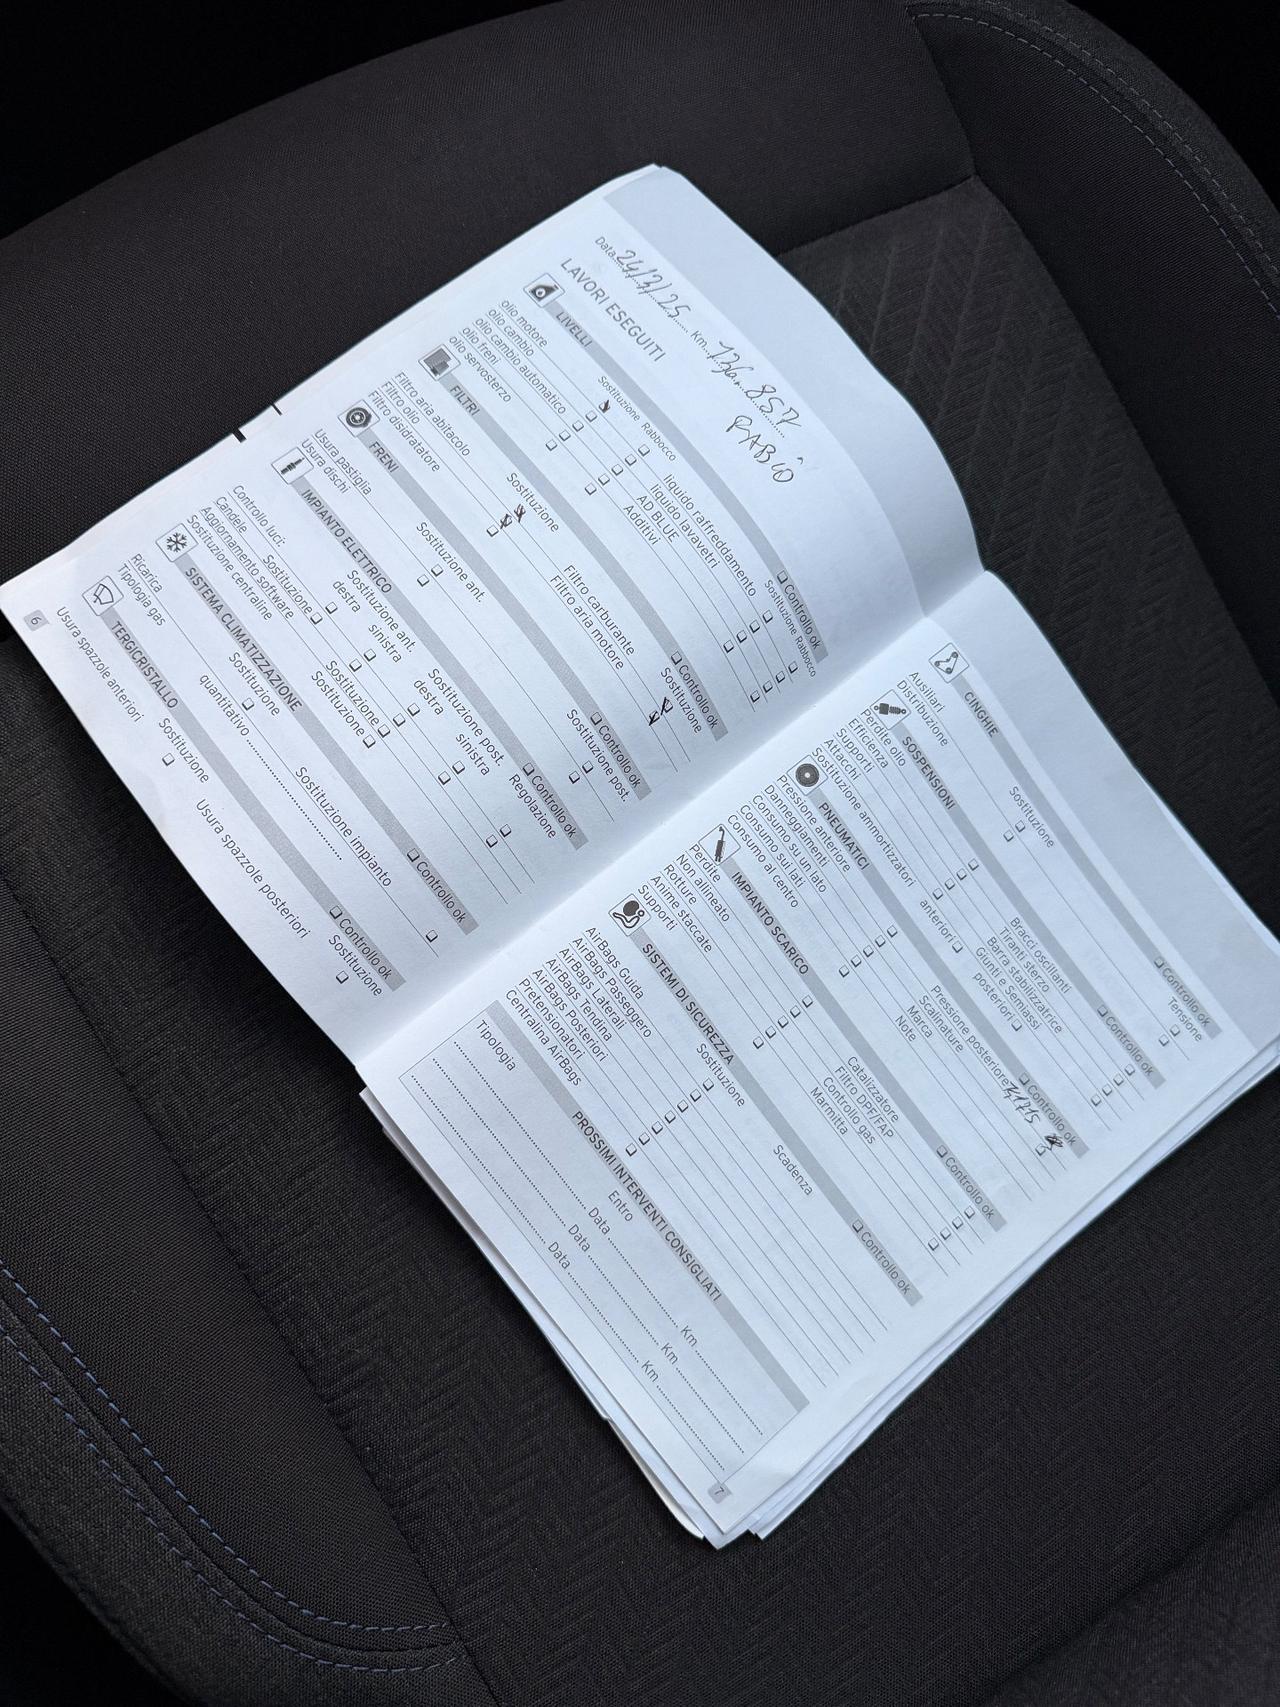 Data 24/3/25 Km. 136.857
RABIÓ
LAVORI ESEGUITI
LIVELLI Controllo ok
Sostituzione Rabbocco Sostituzione Rabbocco
olio motore liquido raffreddamento
olio cambio liquido lavavetri
olio cambio automatico AD BLUE
olio freni Additivi
olio servosterzo
FILTRI Controllo ok
Sostituzione Sostituzione
Filtro aria abitacolo Filtro carburante
Filtro olio Filtro aria motore
Filtro disidratatore
FRENI Controllo ok
Sostituzione ant. Sostituzione post.
Usura pastiglia
Usura dischi
IMPIANTO ELETTRICO Controllo ok
Sostituzione ant. Sostituzione post. Regolazione
Controllo luci: destra sinistra destra sinistra
Candele Sostituzione
Aggiornamento software Sostituzione
Sostituzione centraline Sostituzione
SISTEMA CLIMATIZZAZIONE Controllo ok
Ricarica Sostituzione Sostituzione impianto
Tipologia gas quantitativo
TERGICRISTALLO Controllo ok
Sostituzione Sostituzione
Usura spazzole anteriori Usura spazzole posteriori
6
CINGHIE Controllo ok
Sostituzione Tensione
Ausiliari
Distribuzione
SOSPENSIONI Controllo ok
Perdite olio Bracci oscillanti
Efficienza Tiranti sterzo
Supporti Barra stabilizzatrice
Attacchi Giunti e Semiassi
Sostituzione ammortizzatori anteriori posteriori
PNEUMATICI Controllo ok
Pressione anteriore Pressione posteriore
Danneggiamenti Scalinature
Consumo su un lato Marca
Consumo sui lati Note
Consumo al centro
IMPIANTO SCARICO Controllo ok
Perdite Catalizzatore
Non allineato Filtro DPF/FAP
Rotture Controllo gas
Anime staccate Marmitta
Supporti
SISTEMI DI SICUREZZA Controllo ok
Sostituzione Scadenza
AirBags Guida
AirBags Passeggero
AirBags Laterali
AirBags Tendina
AirBags Posteriori
Pretensionatori
Centralina AirBags
PROSSIMI INTERVENTI CONSIGLIATI
Tipologia Entro
Data Km
Data Km
Data Km
7